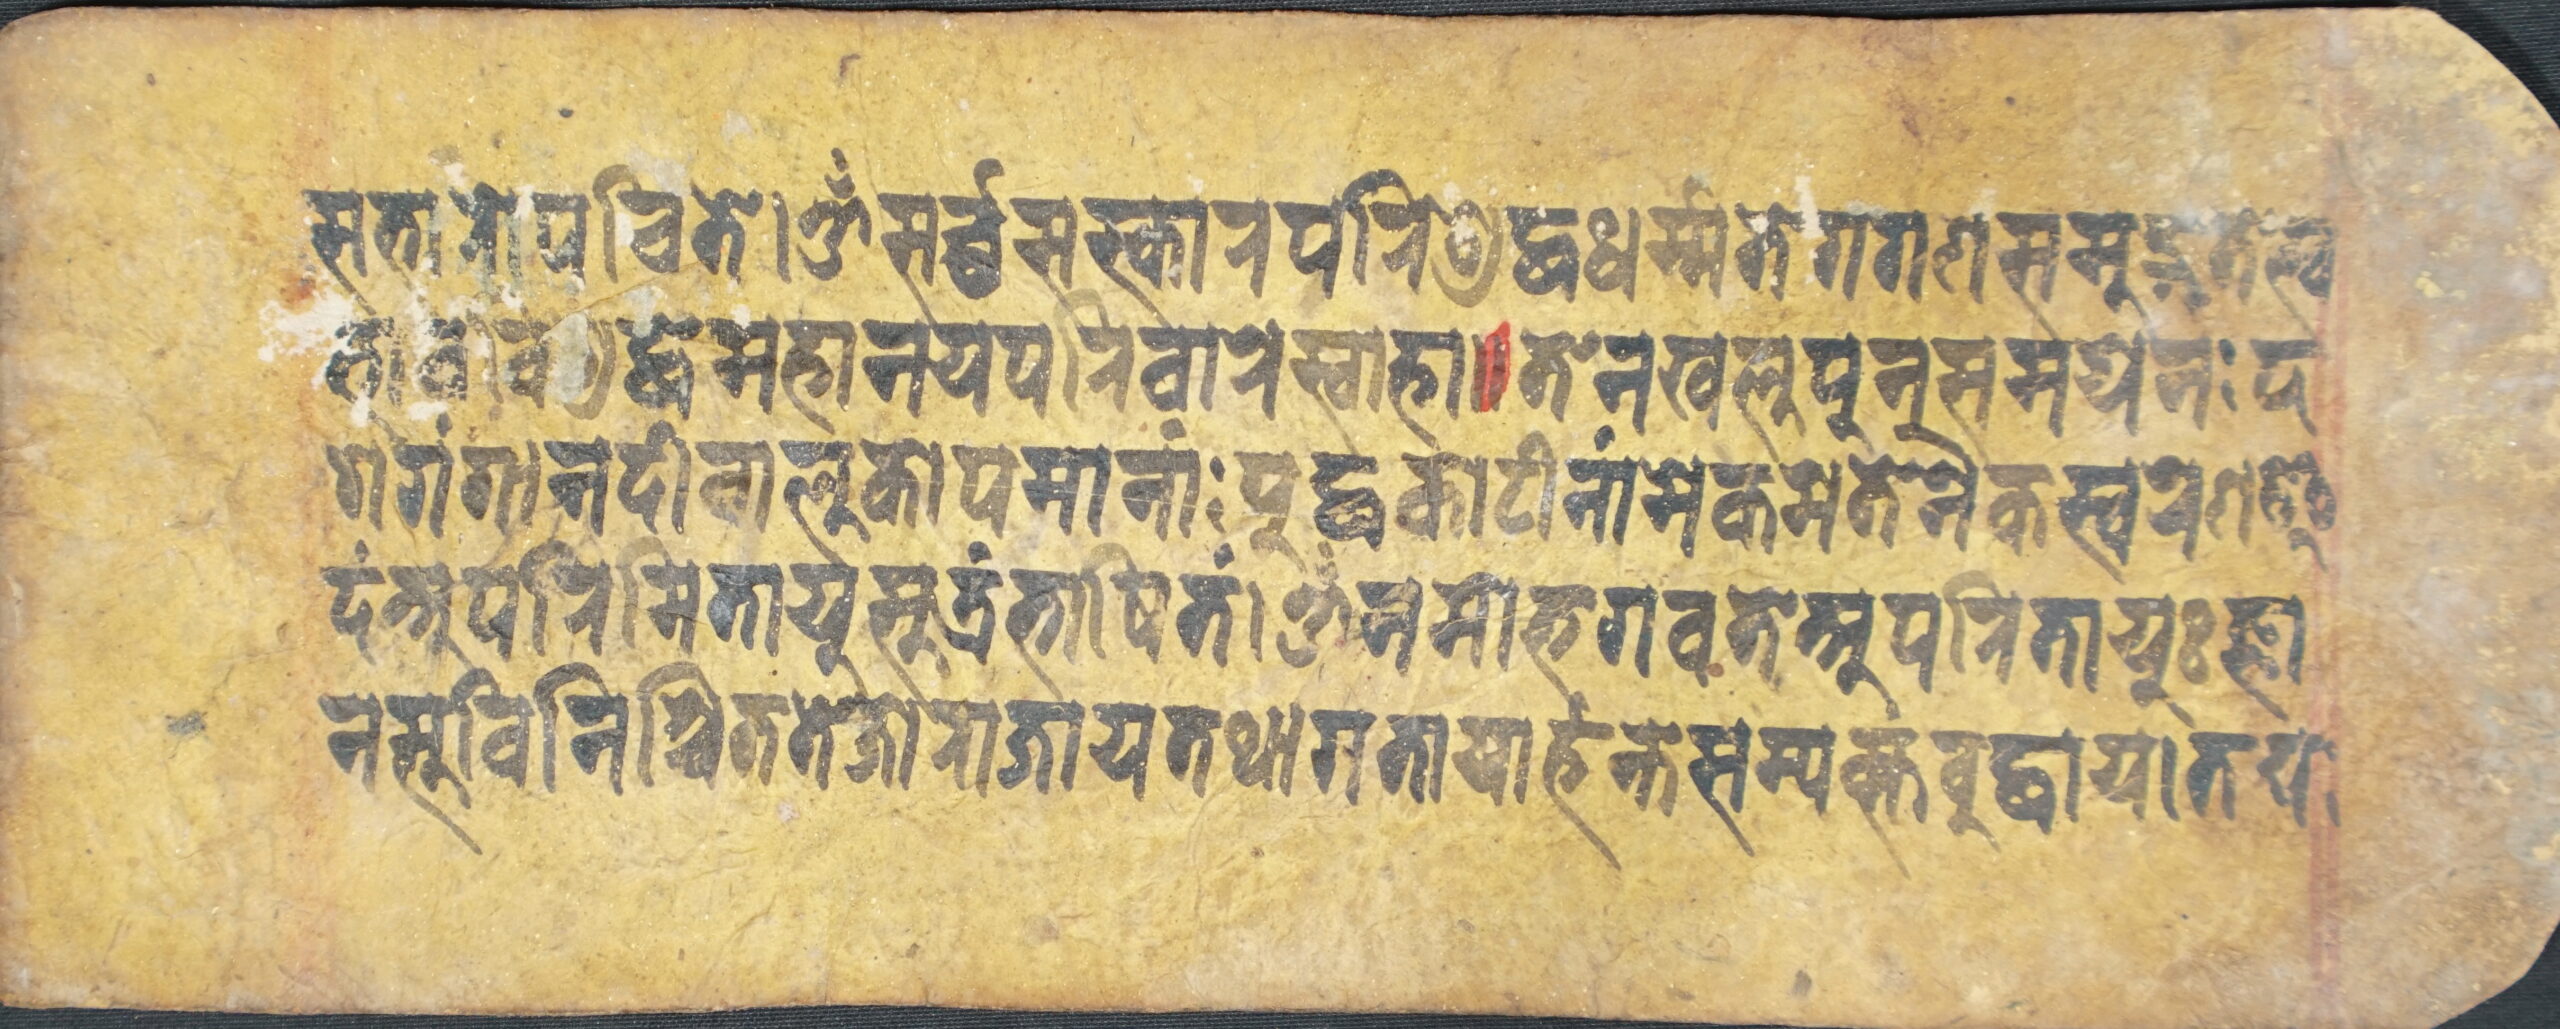 सभारोपचिते।ॐसर्व्वसस्कारपरिशुद्धधर्म्मतेगगणसमुद्गतेस्व
भावविशुद्धेमहानयपरिवारस्वाहा॥तेनखलुपुनसमयेनःद
शगंगानदीवालुकोपमानांःबुद्धकोटीनांमेकमतेनैकस्वरेणइ
दंअपरिमितायुसुत्रंभाषितं।ॐनमोभगवतेअपरितायुःज्ञा
नसुविनिश्चिततेजोराजायतथागतायार्हतेसम्यक्संबुद्धाय।तद्य